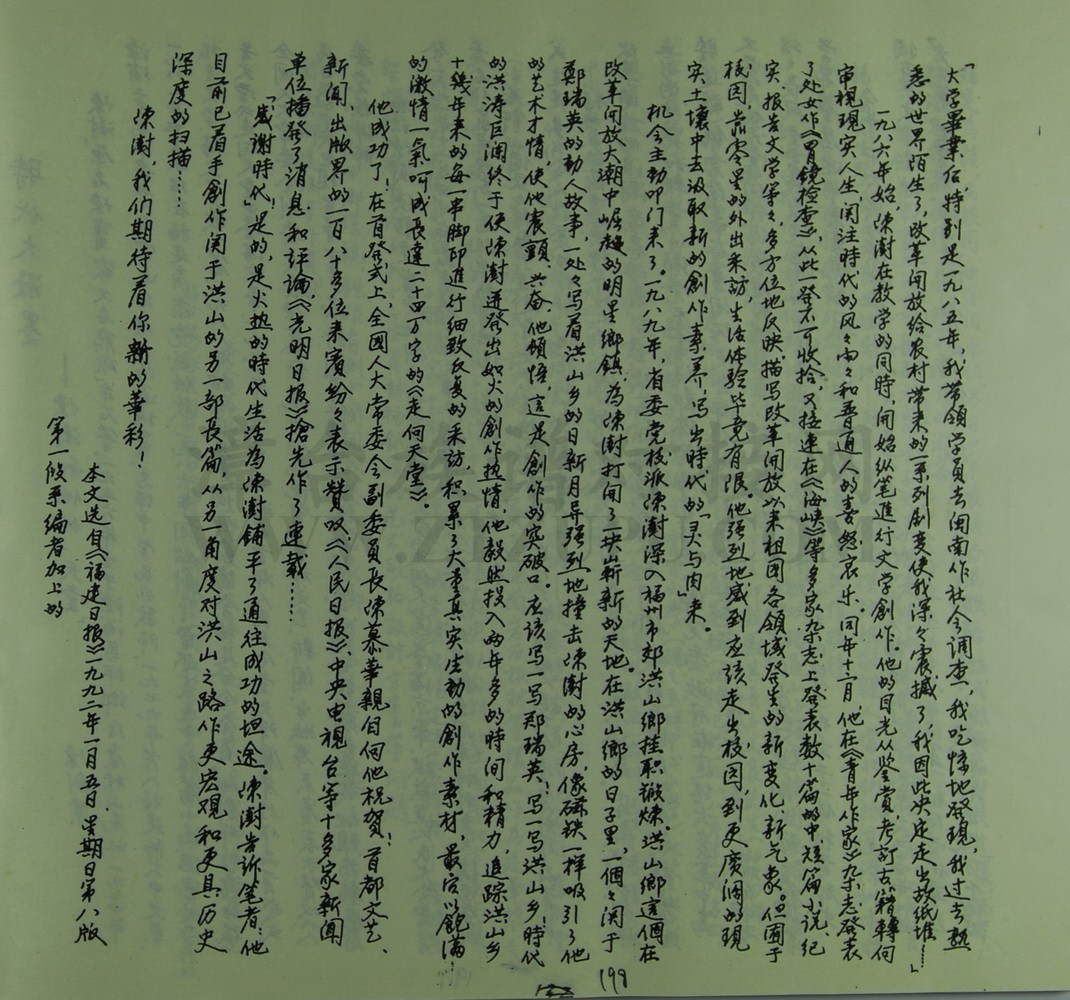 「大学畢業后,特别是一九八五年,我带領学員去闽南作社会调查,我吃惊地發現,我过去熟
悉的世界陌生了,改革開放给农村带来的一系列剧变使我深々震撼了,我因此决定走出故纸堆……」
一九八六年始,陳澍在教学的同時,開始纵笔進行文学創作。他的目光从鉴賞,考訂古籍轉向
審視現实人生,関注時代的风々雨々和普通人的喜怒哀乐。同年十二月,他在《青年作家》杂志發表
了处女作《胃鏡检查》,从此一發不可收拾,又接連在《海峡》等多家杂志上發表数十篇的中、短篇小说、纪
实、报告文学等々,多方位地反映、描写改革開放以来祖国各領域發生的新变化新气象。但囿于
校园,靠零星的外出采訪,生活体验毕竟有限。他强烈地感到应该走出校园,到更廣阔的現
实土壤中去汲取新的創作素养,写出時代的「灵与肉」来。
机会主動叩门来了。一九八九年,省委党校派陳澍深入福州市郊洪山鄉挂职锻煉。洪山鄉這個在
改革開放大潮中崛起的明星鄉鎮,為陳澍打開了一块崭新的天地。在洪山鄉的日子里,一個々関于
鄭瑞英的動人故事,一处々写着洪山乡的日新月异强烈地撞击陳澍的心房,像磁铁一样吸引了他
的艺术才情,使他震颤、兴奋。他頓悟,這是創作的突破口。应该写一写郑瑞英!写一写洪山乡!時代
的洪涛巨澜终于使陳澍迸發出如火的創作热情,他毅然投入两年多的時间和精力,追踪洪山乡
十幾年来的每一串脚印進行细致反复的采訪,积累了大量真实生動的創作素材,最后以飽滿
的激情一氣呵成長達二十四万字的《走向天堂》。
他成功了!在首發式上,全國人大常委会副委員長陳慕華親自向他祝賀!首都文艺、
新闻、出版界的一百八十多位来賓纷々表示赞叹,《人民日报》、中央电視台等十多家新闻
单位播發了消息和評論,《光明日报》搶先作了連載……
「感謝時代!」是的,是火热的時代生活為陳澍鋪平了通往成功的坦途。陳澍告訴笔者:他
目前已着手創作関于洪山的另一部長篇,从另一角度对洪山之路作更宏观和更具历史
深度的扫描……
陳澍,我们期待着你新的華彩!
本文选自《福建日报》一九九二年一月五日,星期日第八版
第一段系編者加上的
198